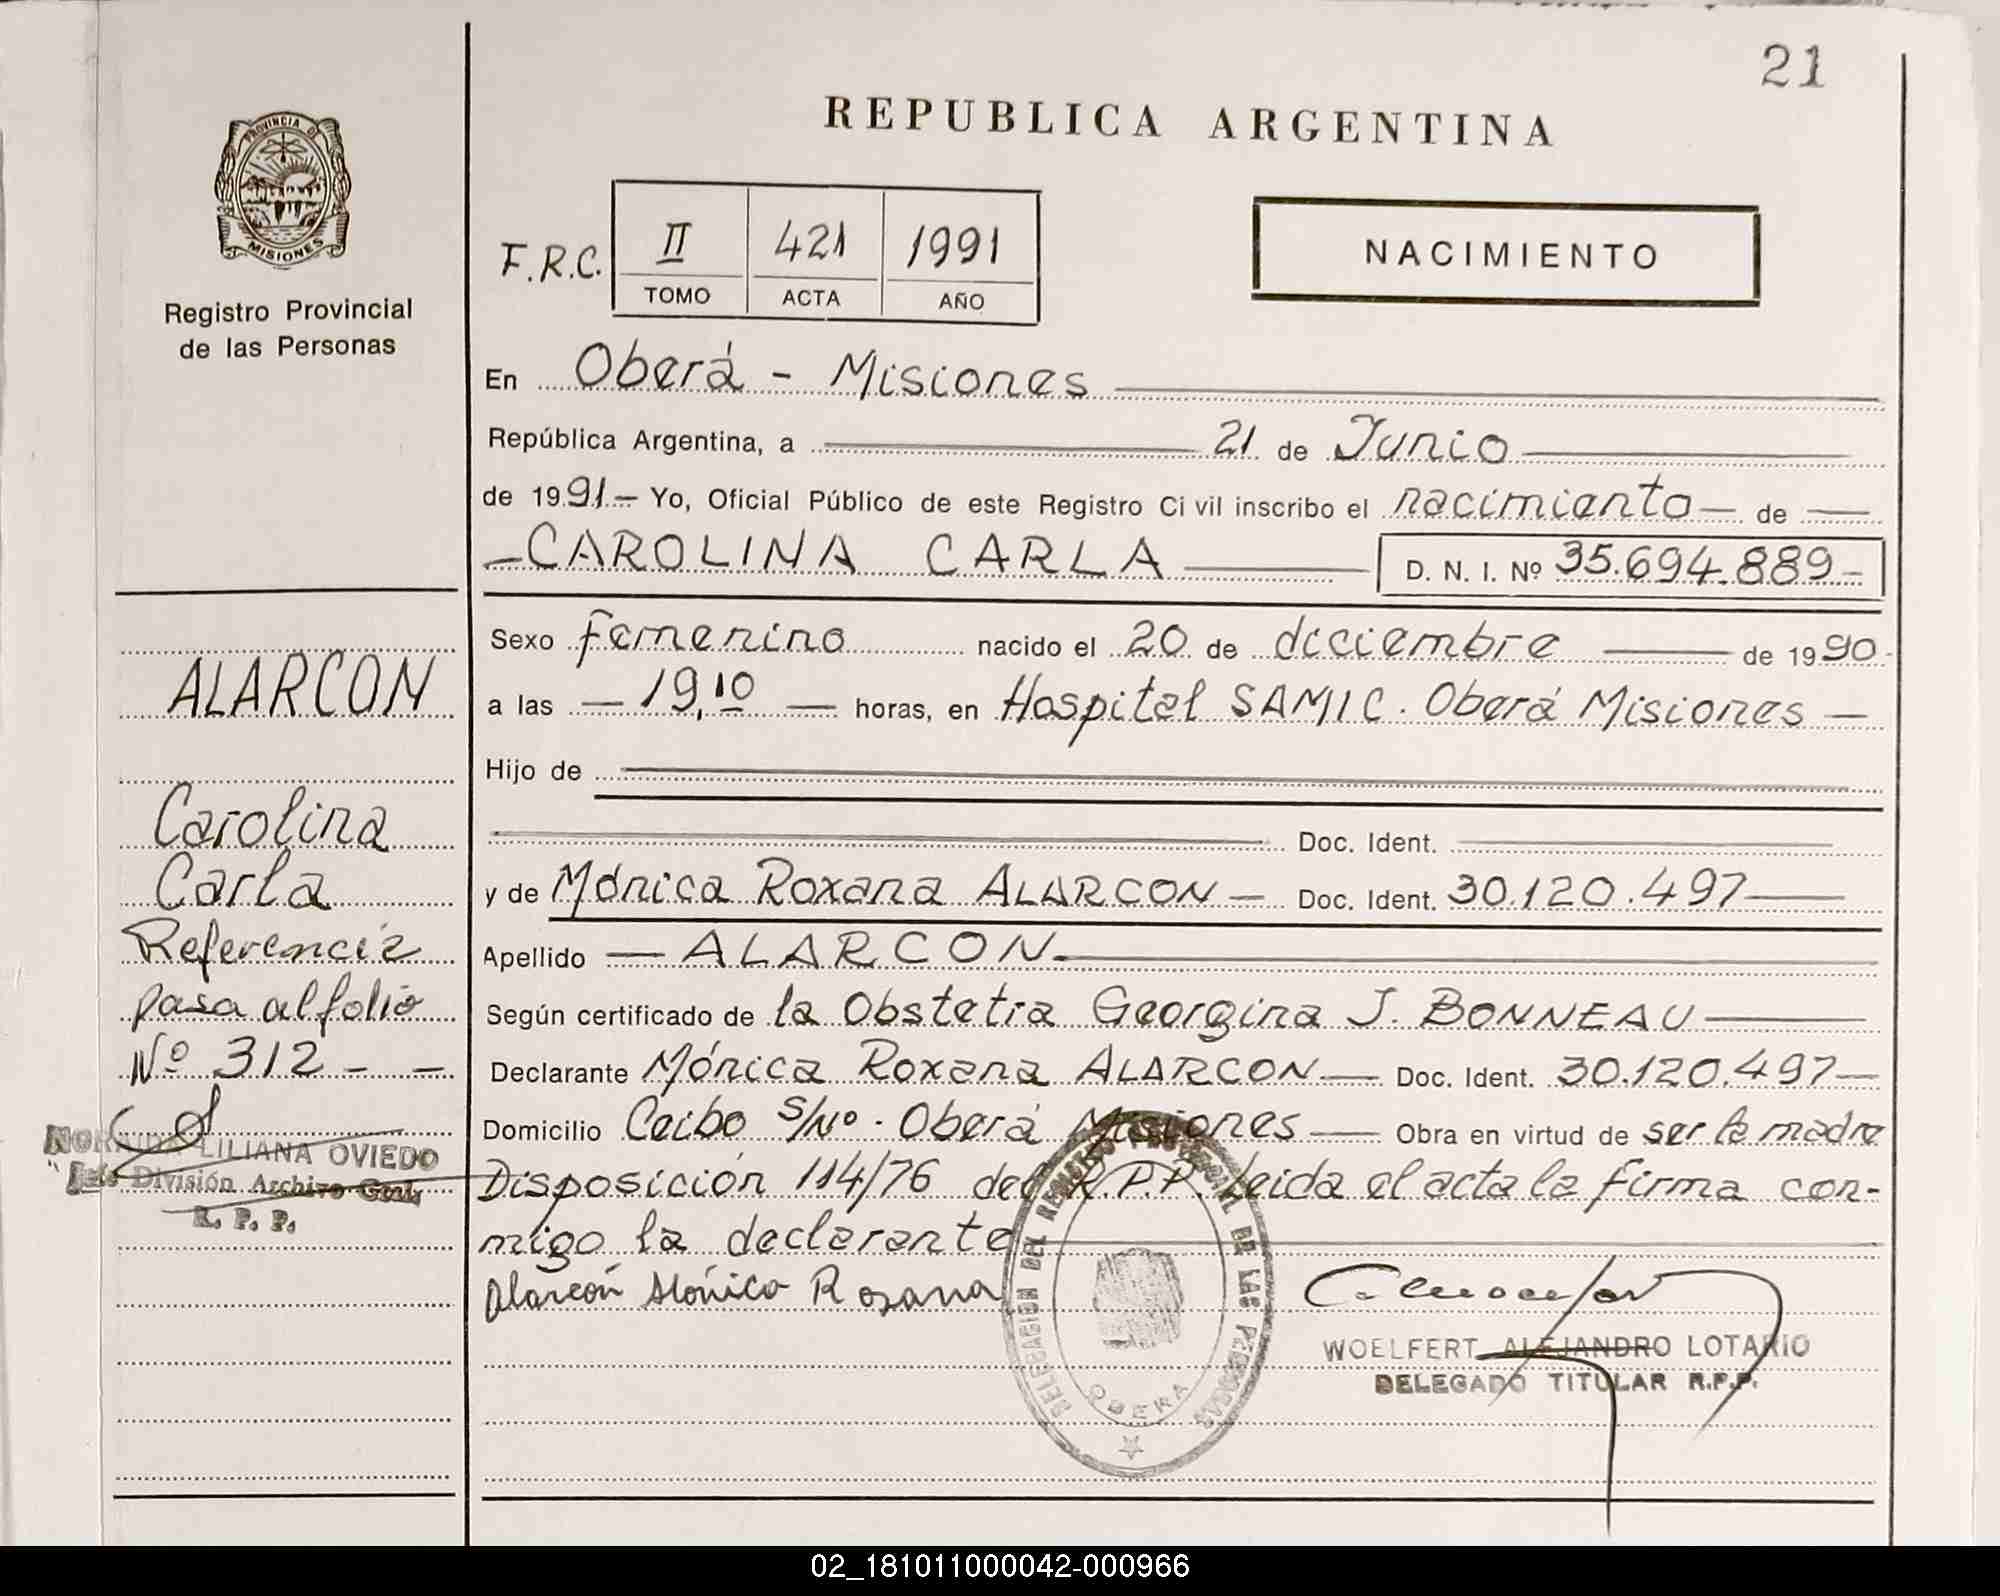 21
REPUBLICA ARGENTINA
PROVINCIA DE
MISIONES
Registro Provincial
de las Personas
F.R.C.
II 421 1991
TOMO ACTA AÑO
NACIMIENTO
En Oberá - Misiones
República Argentina, a 21 de Junio
de 1991.- Yo, Oficial Público de este Registro Civil inscribo el nacimiento - de
- CAROLINA CARLA D. N. I. Nº 35.694.889-
Sexo femenino nacido el 20 de diciembre de 1990.
a las - 19,10 - horas, en Hospital SAMIC. Oberá Misiones -
Hijo de
Doc. Ident.
y de Mónica Roxana ALARCON - Doc. Ident. 30.120.497
Apellido - ALARCON.
Según certificado de la Obstetra Georgina J. BONNEAU
Declarante Mónica Roxana ALARCON - Doc. Ident. 30.120.497-
Domicilio Ceibo s/Nº. Oberá Misiones - Obra en virtud de ser la madre
Disposición 114/76 del R.P.P. Leida el acta la firma con-
migo la declarante
Alarcón Mónica Roxana
ALARCON
Carolina
Carla
Referencia
pasa al folio
Nº 312 - -
LILIANA OVIEDO
División Archivo Gral.
R. P. P.
DELEGACION DEL REGISTRO PROVINCIAL DE LAS PERSONAS
OBERA
WOELFERT ALEJANDRO LOTARIO
DELEGADO TITULAR R.P.P.
02_181011000042-000966